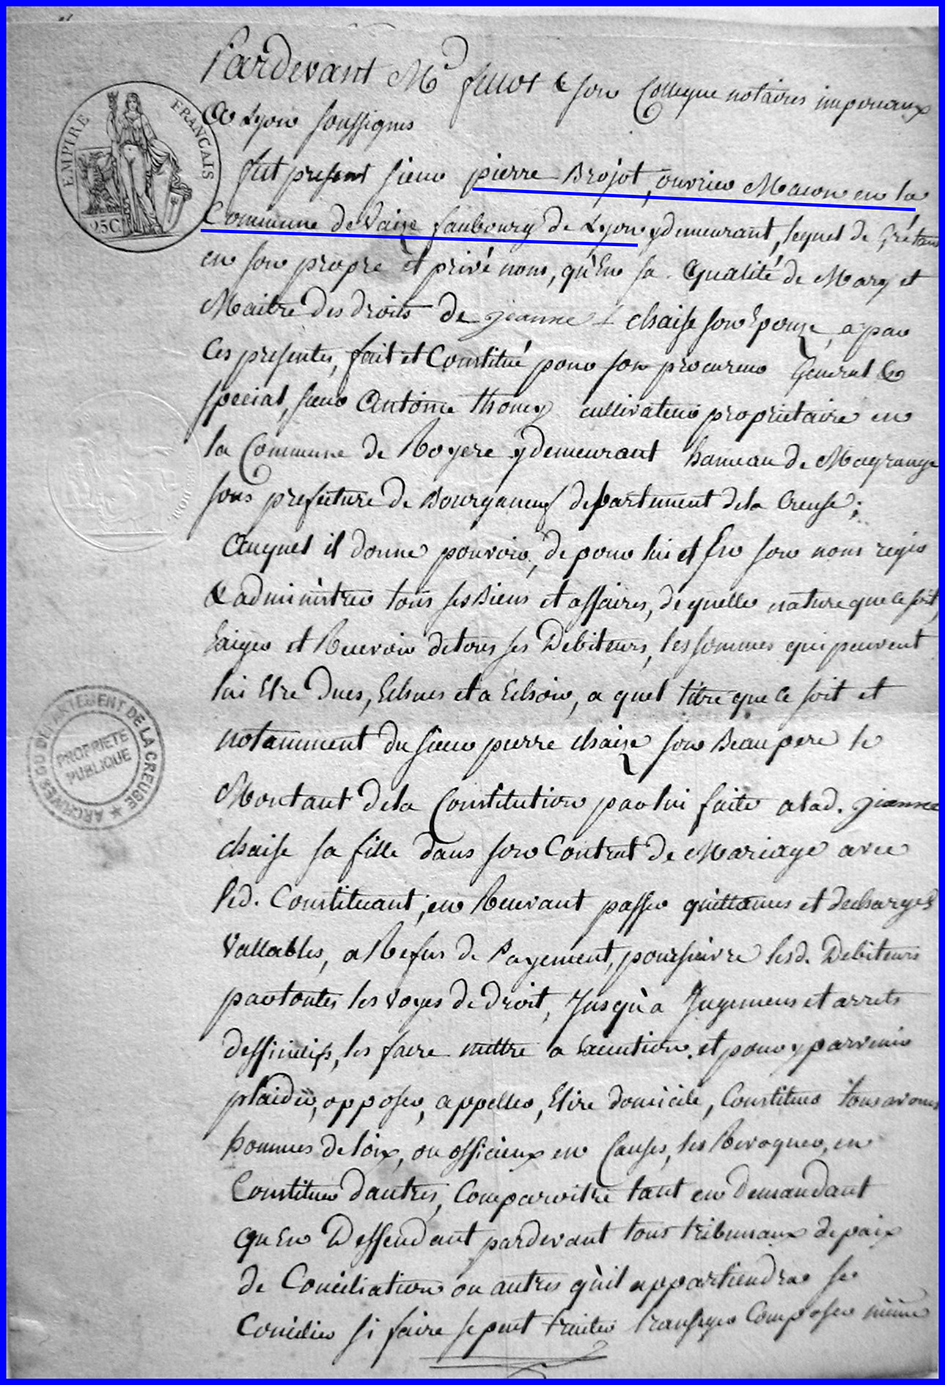 EMPIRE FRANÇAIS
25C
Pardevant Me fillot & son Collegue notaires imperiaux
A Lyon soussignes
fut present sieur pierre Brojot, ouvrier Macon en la
Commune de Vaize faubourg de Lyon y demeurant, lequel de gré tant
en son propre et privé nom, qu'En sa qualité de Mary et
Maitre des droits de jeanne chaise son Epouze, a par
Ces presentes, fait et Constitué pour son procureur General &
special, sieur Antoine thomy cultivateur proprietaire en
la Commune de Royere y demeurant hameau de Magrange
sous prefecture de Bourganeuf departement de la Creuse;
Auquel il donne pouvoir, de pour lui et En son nom regir
& administrer tous ses Biens et affaires, de quelle nature que ce soit,
Exiger et Recevoir de tous ses Debiteurs, les sommes qui peuvent
lui Etre Dues, Echues et a Echoir, a quel titre que ce soit et
notamment du sieur pierre chaize son Beau pere le
Montant de la Constitution par lui faite a lad. jeanne
chaise sa fille dans son Contrat de Mariage avec
led. Constituant; en Recevant passer quittances et decharges
Vallables, a Refus de Payement, poursuivre lesd. Debiteurs
par toutes les voyes de droit, Jusqu'a Jugemens et arrets
deffinitifs, les faire mettre a Execution. et pour y parvenir
plaider, opposer, appeller, Elire domicile, Constituer tous avoués
hommes de loix, ou officieux en Causes, les Revoquer, en
Constituer d'autres, Comparoitre tant en Demandant
qu'En Deffendant pardevant tous tribunaux de paix
de Conciliation ou autres qu'il appartiendra se
Concilier si faire se peut traiter transiger Composer même
ARCHIVES DU DEPARTEMENT DE LA CREUSE
PROPRIETE
PUBLIQUE